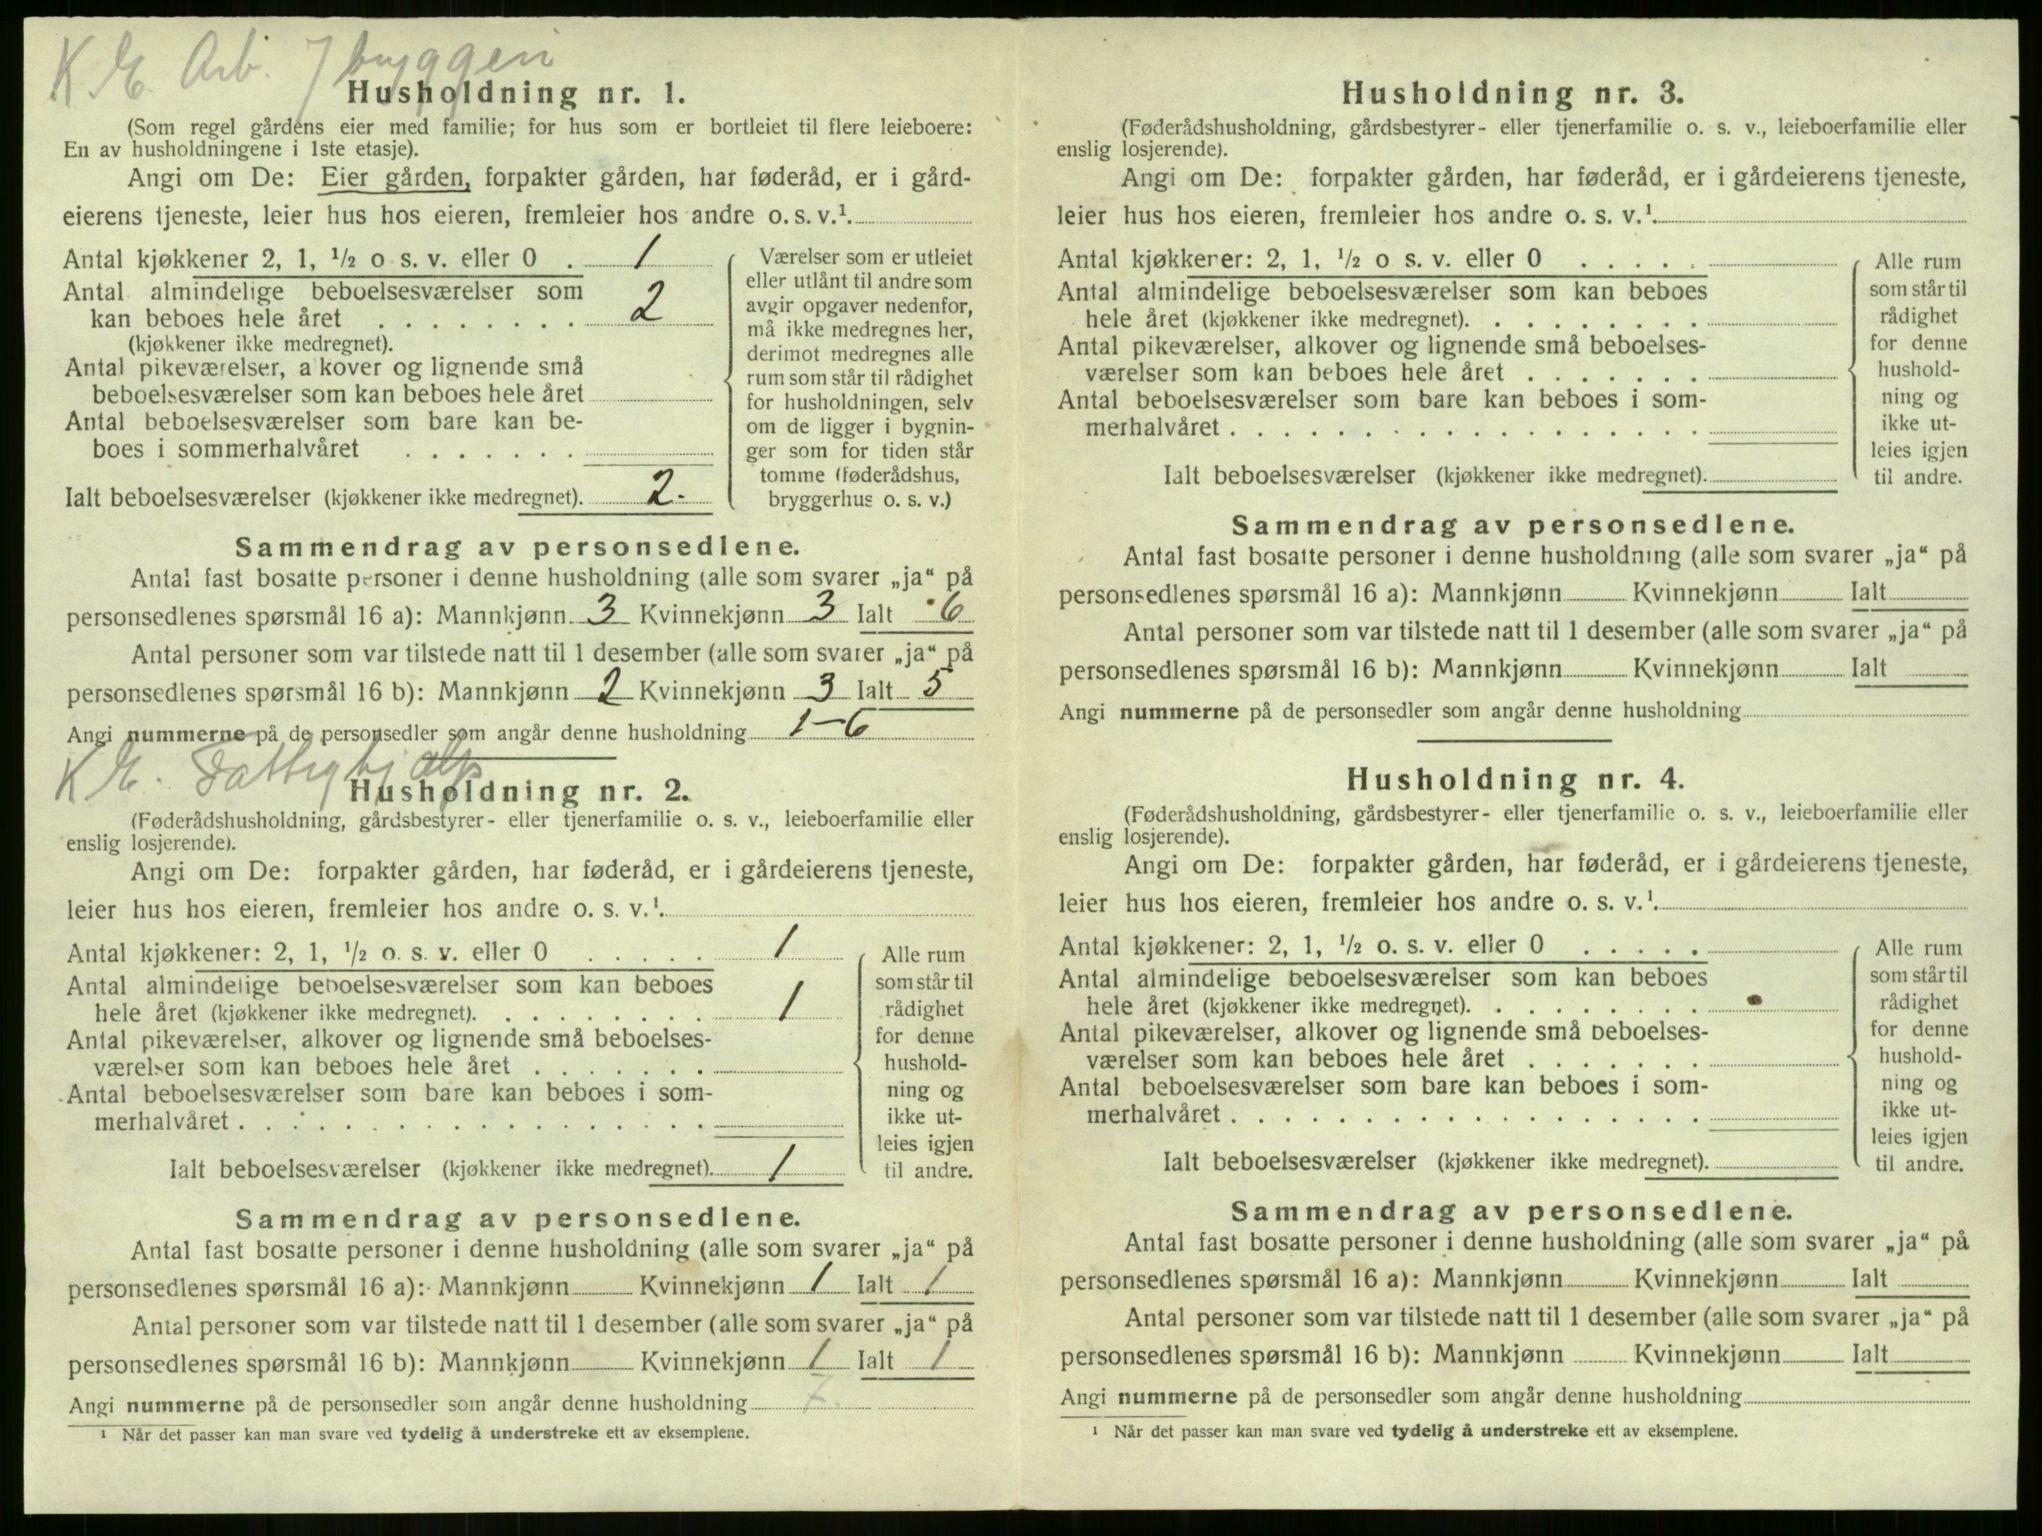 K. E. Arb. I bryggeri
Husholdning nr. 1.
(Som regel gårdens eier med familie; for hus som er bortleiet til flere leieboere:
En av husholdningene i 1ste etasje).
Angi om De: Eier gården, forpakter gården, har føderåd, er i gård-
eierens tjeneste, leier hus hos eieren, fremleier hos andre o. s. v.¹.
Antal kjøkkener 2, 1, ½ o. s. v. eller 0 . 1
Antal almindelige beboelsesværelser som
kan beboes hele året . . . . . . . . 2
(kjøkkener ikke medregnet).
Antal pikeværelser, a kover og lignende små
beboelsesværelser som kan beboes hele året
Antal beboelsesværelser som bare kan be-
boes i sommerhalvåret . . . . . . .
Ialt beboelsesværelser (kjøkkener ikke medregnet). 2.
Værelser som er utleiet
eller utlånt til andre som
avgir opgaver nedenfor,
må ikke medregnes her,
derimot medregnes alle
rum som står til rådighet
for husholdningen, selv
om de ligger i bygnin-
ger som for tiden står
tomme (føderådshus,
bryggerhus o. s. v.)
Sammendrag av personsedlene.
Antal fast bosatte personer i denne husholdning (alle som svarer „ja“ på
personsedlenes spørsmål 16 a): Mannkjønn 3 Kvinnekjønn 3 Ialt 6
Antal personer som var tilstede natt til 1 desember (alle som svarer „ja“ på
personsedlenes spørsmål 16 b): Mannkjønn 2 Kvinnekjønn 3 Ialt 5
Angi nummerne på de personsedler som angår denne husholdning 1-6
K. E. Fattighjelp
Husholdning nr. 2.
(Føderådshusholdning, gårdsbestyrer- eller tjenerfamilie o. s. v., leieboerfamilie eller
enslig losjerende).
Angi om De: forpakter gården, har føderåd, er i gårdeierens tjeneste,
leier hus hos eieren, fremleier hos andre o. s. v.¹.
Antal kjøkkener: 2, 1, ½ o. s. v. eller 0 . . . . . 1
Antal almindelige beboelsesværelser som kan beboes
hele året (kjøkkener ikke medregnet). . . . . . . . . 1
Antal pikeværelser, alkover og lignende små beboelses-
værelser som kan beboes hele året . . . . . . .
Antal beboelsesværelser som bare kan beboes i som-
merhalvåret . . . . . . . . . . . . . . . . . .
Ialt beboelsesværelser (kjøkkener ikke medregnet). 1
Alle rum
som står til
rådighet
for denne
hushold-
ning og
ikke ut-
leies igjen
til andre.
Sammendrag av personsedlene.
Antal fast bosatte personer i denne husholdning (alle som svarer „ja“ på
personsedlenes spørsmål 16 a): Mannkjønn Kvinnekjønn 1 Ialt 1
Antal personer som var tilstede natt til 1 desember (alle som svarer „ja“ på
personsedlenes spørsmål 16 b): Mannkjønn Kvinnekjønn 1 Ialt 1
Angi nummerne på de personsedler som angår denne husholdning 7
¹ Når det passer kan man svare ved tydelig å understreke ett av eksemplene.
Husholdning nr. 3.
(Føderådshusholdning, gårdsbestyrer- eller tjenerfamilie o. s. v., leieboerfamilie eller
enslig losjerende).
Angi om De: forpakter gården, har føderåd, er i gårdeierens tjeneste,
leier hus hos eieren, fremleier hos andre o. s. v.¹.
Antal kjøkkener: 2, 1, ½ o s. v. eller 0 . . . . .
Antal almindelige beboelsesværelser som kan beboes
hele året (kjøkkener ikke medregnet). . . . . . . . .
Antal pikeværelser, alkover og lignende små beboelses-
værelser som kan beboes hele året . . . . . . .
Antal beboelsesværelser som bare kan beboes i som-
merhalvåret . . . . . . . . . . . . . . . . . .
Ialt beboelsesværelser (kjøkkener ikke medregnet).
Alle rum
som står til
rådighet
for denne
hushold-
ning og
ikke ut-
leies igjen
til andre.
Sammendrag av personsedlene.
Antal fast bosatte personer i denne husholdning (alle som svarer „ja“ på
personsedlenes spørsmål 16 a): Mannkjønn Kvinnekjønn Ialt
Antal personer som var tilstede natt til 1 desember (alle som svarer „ja“ på
personsedlenes spørsmål 16 b): Mannkjønn Kvinnekjønn Ialt
Angi nummerne på de personsedler som angår denne husholdning
Husholdning nr. 4.
(Føderådshusholdning, gårdsbestyrer- eller tjenerfamilie o. s. v., leieboerfamilie eller
enslig losjerende).
Angi om De: forpakter gården, har føderåd, er i gårdeierens tjeneste,
leier hus hos eieren, fremleier hos andre o. s. v.¹.
Antal kjøkkener: 2, 1, ½ o. s. v. eller 0 . . . . .
Antal almindelige beboelsesværelser som kan beboes
hele året (kjøkkener ikke medregnet). . . . . . . . .
Antal pikeværelser, alkover og lignende små beboelses-
værelser som kan beboes hele året . . . . . . .
Antal beboelsesværelser som bare kan beboes i som-
merhalvåret . . . . . . . . . . . . . . . . . .
Ialt beboelsesværelser (kjøkkener ikke medregnet).
Alle rum
som står til
rådighet
for denne
hushold-
ning og
ikke ut-
leies igjen
til andre.
Sammendrag av personsedlene.
Antal fast bosatte personer i denne husholdning (alle som svarer „ja“ på
personsedlenes spørsmål 16 a): Mannkjønn Kvinnekjønn Ialt
Antal personer som var tilstede natt til 1 desember (alle som svarer „ja“ på
personsedlenes spørsmål 16 b): Mannkjønn Kvinnekjønn Ialt
Angi nummerne på de personsedler som angår denne husholdning
¹ Når det passer kan man svare ved tydelig å understreke ett av eksemplene.